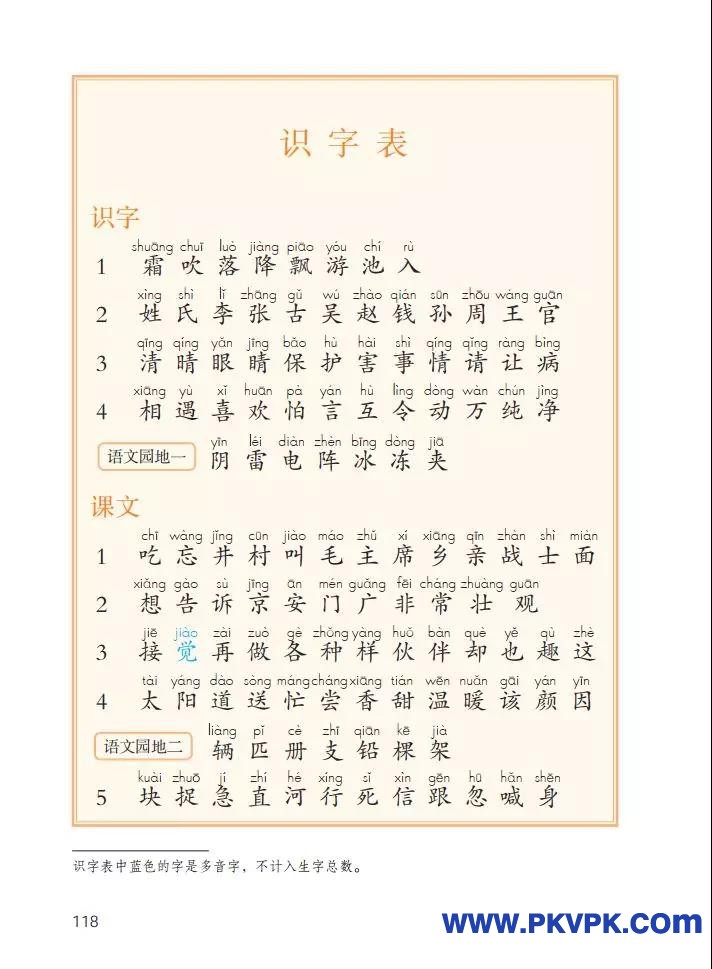 识字表
识字
shuāng chuī luò jiàng piāo yóu chí rù
1 霜 吹 落 降 飘 游 池 入
xìng shì lǐ zhāng gǔ wú zhào qián sūn zhōu wáng guān
2 姓 氏 李 张 古 吴 赵 钱 孙 周 王 官
qīng qíng yǎn jīng bǎo hù hài shì qíng qǐng ràng bìng
3 清 晴 眼 睛 保 护 害 事 情 请 让 病
xiāng yù xǐ huān pà yán hù lìng dòng wàn chún jìng
4 相 遇 喜 欢 怕 言 互 令 动 万 纯 净
yīn léi diàn zhèn bīng dòng jiā
语文园地一 阴 雷 电 阵 冰 冻 夹
课文
chī wàng jǐng cūn jiào máo zhǔ xí xiāng qīn zhàn shì miàn
1 吃 忘 井 村 叫 毛 主 席 乡 亲 战 士 面
xiǎng gào sù jīng ān mén guǎng fēi cháng zhuàng guān
2 想 告 诉 京 安 门 广 非 常 壮 观
jiē jiào zài zuò gè zhǒng yàng huǒ bàn què yě qù zhè
3 接 觉 再 做 各 种 样 伙 伴 却 也 趣 这
tài yáng dào sòng máng cháng xiāng tián wēn nuǎn gāi yán yīn
4 太 阳 道 送 忙 尝 香 甜 温 暖 该 颜 因
liàng pǐ cè zhī qiān kē jià
语文园地二 辆 匹 册 支 铅 棵 架
kuài zhuō jí zhí hé xíng sǐ xìn gēn hū hǎn shēn
5 块 捉 急 直 河 行 死 信 跟 忽 喊 身
识字表中蓝色的字是多音字，不计入生字总数。
118
www.PKVPK.com